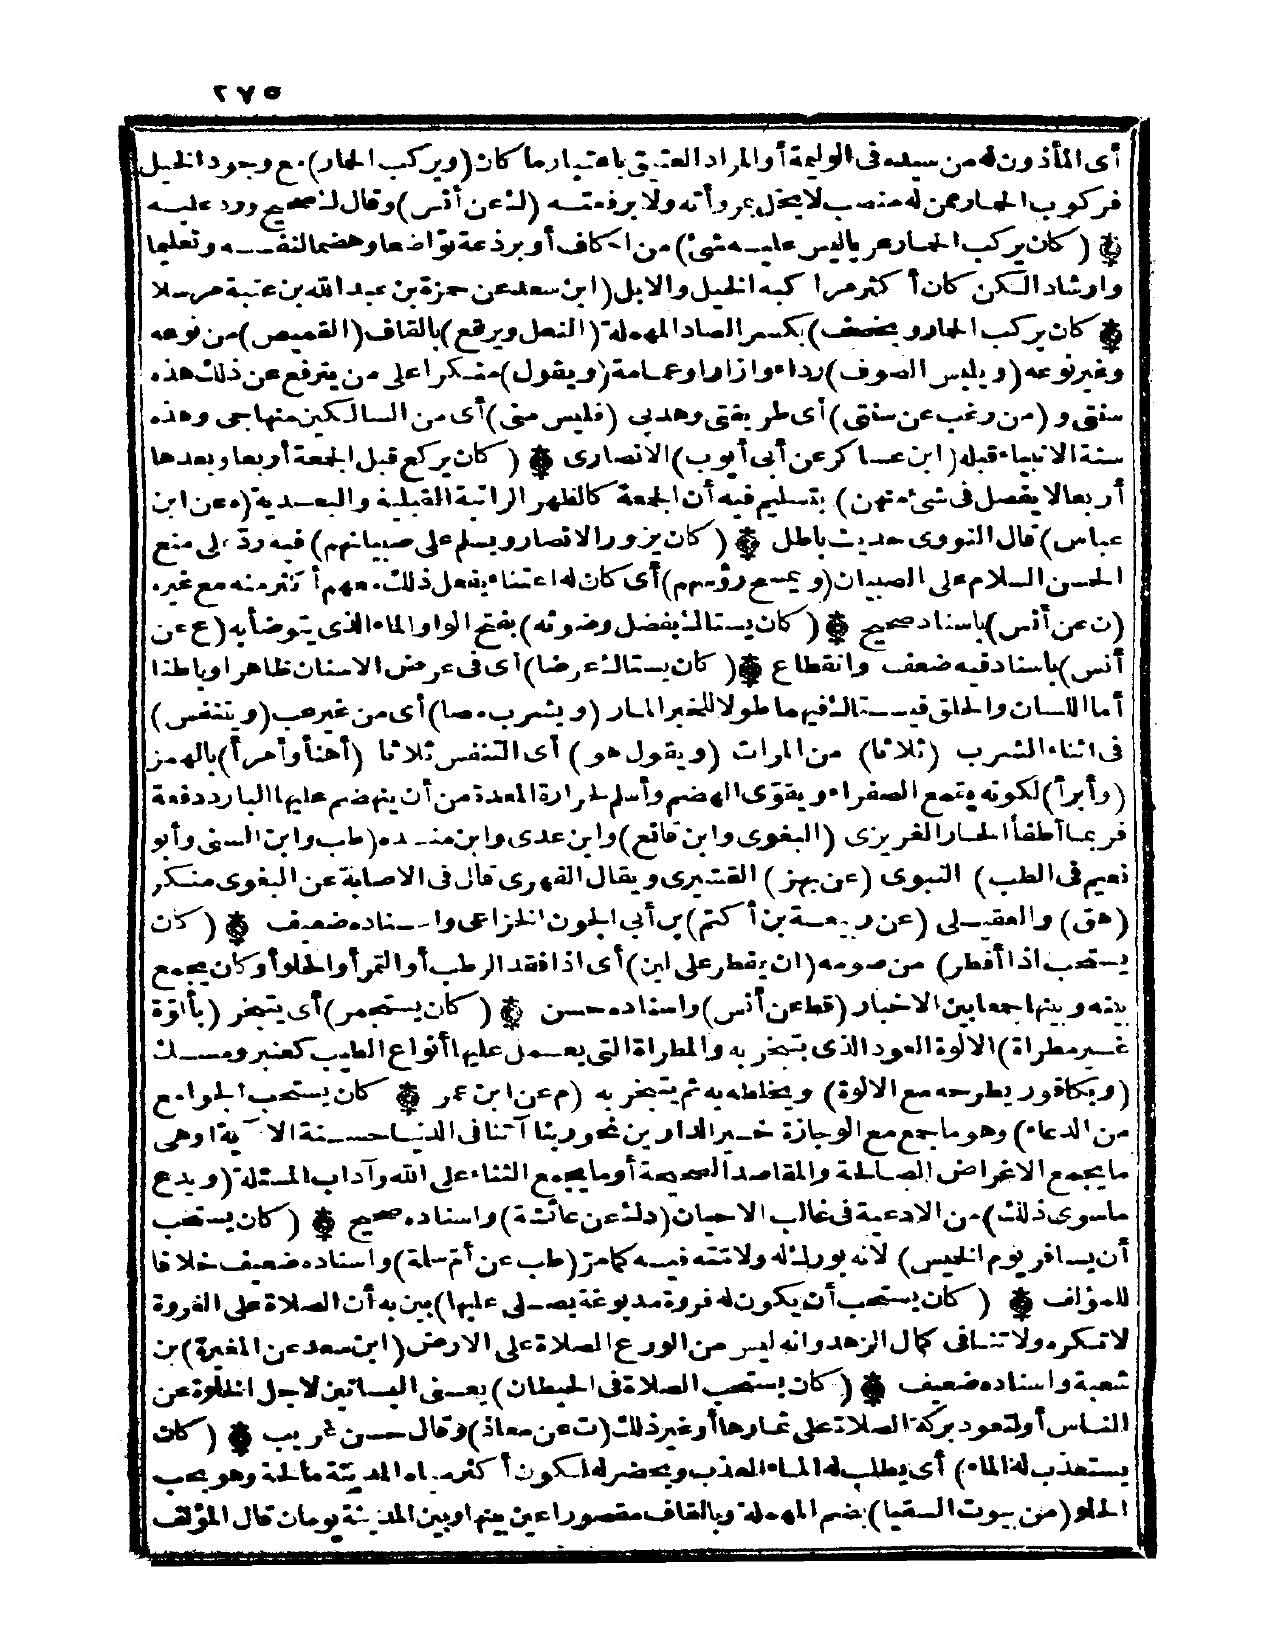 ٢٧٥
أى المأذون له من سيده فى الوليمة أو المراد العتيق باعتبار ما كان (ويركب الحمار) مع وجود الخيل
فركوب الحمار ممن له منصب لا يخل بمروأته ولا برفعته (ك عن أنس) وقال ك صحيح ورد عليه
(كان يركب الحمار عريا ليس عليه شئ) من اكاف أو برذعة تواضعا وهضما لنفسه وتعليما
وارشادا لكن كان أكثر مراكبه الخيل والابل (ابن سعد عن حمزة بن عبد الله بن عتبة مرسلا
(كان يركب الحمار ويخصف) بكسر الصاد المهملة (النعل ويرقع) بالقاف (القميص) من نوعه
وغير نوعه (ويلبس الصوف) رداء وازارا وعمامة (ويقول) منكرا على من يترفع عن ذلك هذه
سنتى و (من رغب عن سنتى) أى طريقتى وهديى (فليس منى) أى من السالكين منهاجى وهذه
سنة الانبياء قبله (ابن عساكر عن أبى أيوب) الانصارى (كان يركع قبل الجمعة أربعا وبعدها
أربعا لا يفصل فى شئ منهن) بتسليم فيه أن الجمعة كالظهر الراتبة القبلية والبعدية (ه عن ابن
عباس) قال النووى حديث باطل (كان يزور الانصار ويسلم على صبيانهم) فيه رد على منع
الحسن السلام على الصبيان (ويمسح رؤسهم) أى كان له اعتناء بفعل ذلك معهم أكثر منه مع غيرهم
(ن عن أنس) باسناد صحيح (كان يستاك بفضل وضوئه) بفتح الواو الماء الذى يتوضأ به (ع عن
أنس) باسناد فيه ضعف وانقطاع (كان يستاك عرضا) أى فى عرض الاسنان ظاهرا وباطنا
أما اللسان والحلق فيستاك فيهما طولا للخبر المار (ويشرب مصا) أى من غير عب (ويتنفس)
فى اثناء الشرب (ثلاثا) من المرات (ويقول هو) أى التنفس ثلاثا (أهنأ وأمرأ) بالهمز
(وأبرأ) لكونه يقمع الصفراء ويقوى الهضم وأسلم لحرارة المعدة من أن يهضم عليها البارد دفعة
فربما أطفأ الحار الغريزى (البغوى وابن قانع) وابن عدى وابن منده (طب وابن السنى وأبو
نعيم فى الطب) النبوى (عن بهز) القشيرى ويقال الفهرى قال فى الاصابة عن البغوى منكر
(هق) والعقيلى (عن ربيعة بن أكثم) بن أبى الجون الخزاعى واسناده ضعيف (كان
يستحب اذا أفطر) من صومه (ان يفطر على لبن) أى اذا فقد الرطب أو التمر أو الحلو أو كان يجمع
بينه وبينها جمعا بين الاخبار (قط عن أنس) واسناده حسن (كان يستجمر) أى يتبخر (بألوة
غير مطراة) الالوة العود الذى يتبخر به والمطراة التى يعمل عليها أنواع الطيب كعنبر ومسك
(وبكافور يطرحه مع الالوة) ويخلطه به ثم يتبخر به (م عن ابن عمر كان يستحب الجوامع
من الدعاء) وهو ما جمع مع الوجازة خير الدارين نحو ربنا آتنا فى الدنيا حسنة الآية أو هى
ما يجمع الاغراض الصالحة والمقاصد الصحيحة أو ما يجمع الثناء على الله وآداب المسئلة (ويدع
ماسوى ذلك) من الادعية فى غالب الاحيان (د ك عن عائشة) واسناده صحيح (كان يستحب
أن يسافر يوم الخميس) لانه بورك له ولامته فيه كما مر (طب عن أم سلمة) واسناده ضعيف خلافا
للمؤلف (كان يستحب أن يكون له فروة مدبوغة يصلى عليها) بين به أن الصلاة على الفروة
لا تكره ولا تنافى كمال الزهد وانه ليس من الورع الصلاة على الارض (ابن سعد عن المغيرة) بن
شعبة واسناده ضعيف (كان يستحب الصلاة فى الحيطان) يعنى البساتين لاجل الخلوة عن
الناس أو لتعود بركة الصلاة على ثمارها أو غير ذلك (ت عن معاذ) وقال حسن غريب (كان
يستعذب له الماء) أى يطلب له الماء العذب ويحضر له لكون أكثر مياه المدينة مالحة وهو يحب
الحلو (من بيوت السقيا) بضم المهملة وبالقاف مقصورا عين بينها وبين المدينة يومان قال المؤلف